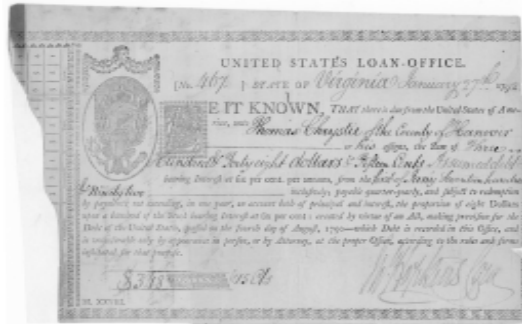 UNITED STATES LOAN-OFFICE.
[No. 467 ] STATE OF Virginia January 27th 1792
BE IT KNOWN, THAT there is due from the United States of Ame-
rica, unto Thomas Chrystie of the County of Hanover
or his assigns, the Sum of Three
Hundred & Forty eight dollars & fifteen Cents Assumed debt
bearing Interest at six per cent. per annum, from the first of January
Ninety two inclusively, payable quarter-yearly, and subject to redemption
by payments not exceeding, in one year, on account both of principal and interest, the proportion of eight Dollars
upon a hundred of the Stock bearing Interest at six per cent. created by virtue of an Act, making provision for the
Debt of the United States, passed on the fourth day of August, 1790—which Debt is recorded in this Office, and
is transferable only by appearance in person, or by Attorney, at the proper Office, according to the rules and forms
instituted for that purpose.
$348